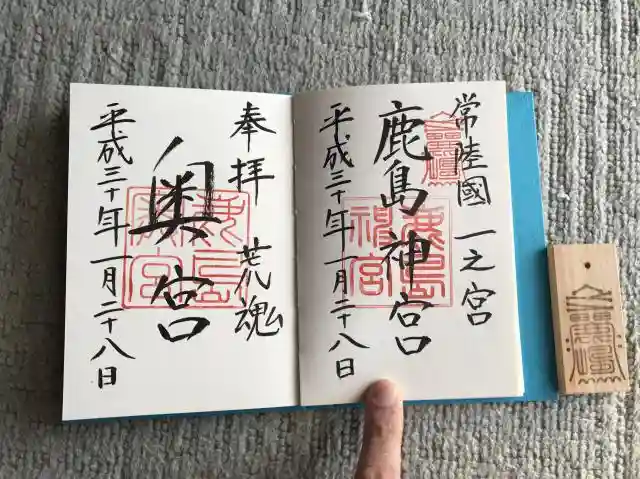 常陸國 一之宮
鹿島神宮
平成三十年一月二十八日
奉拝 荒魂
奥宮
平成三十年一月二十八日
鹿島
神宮